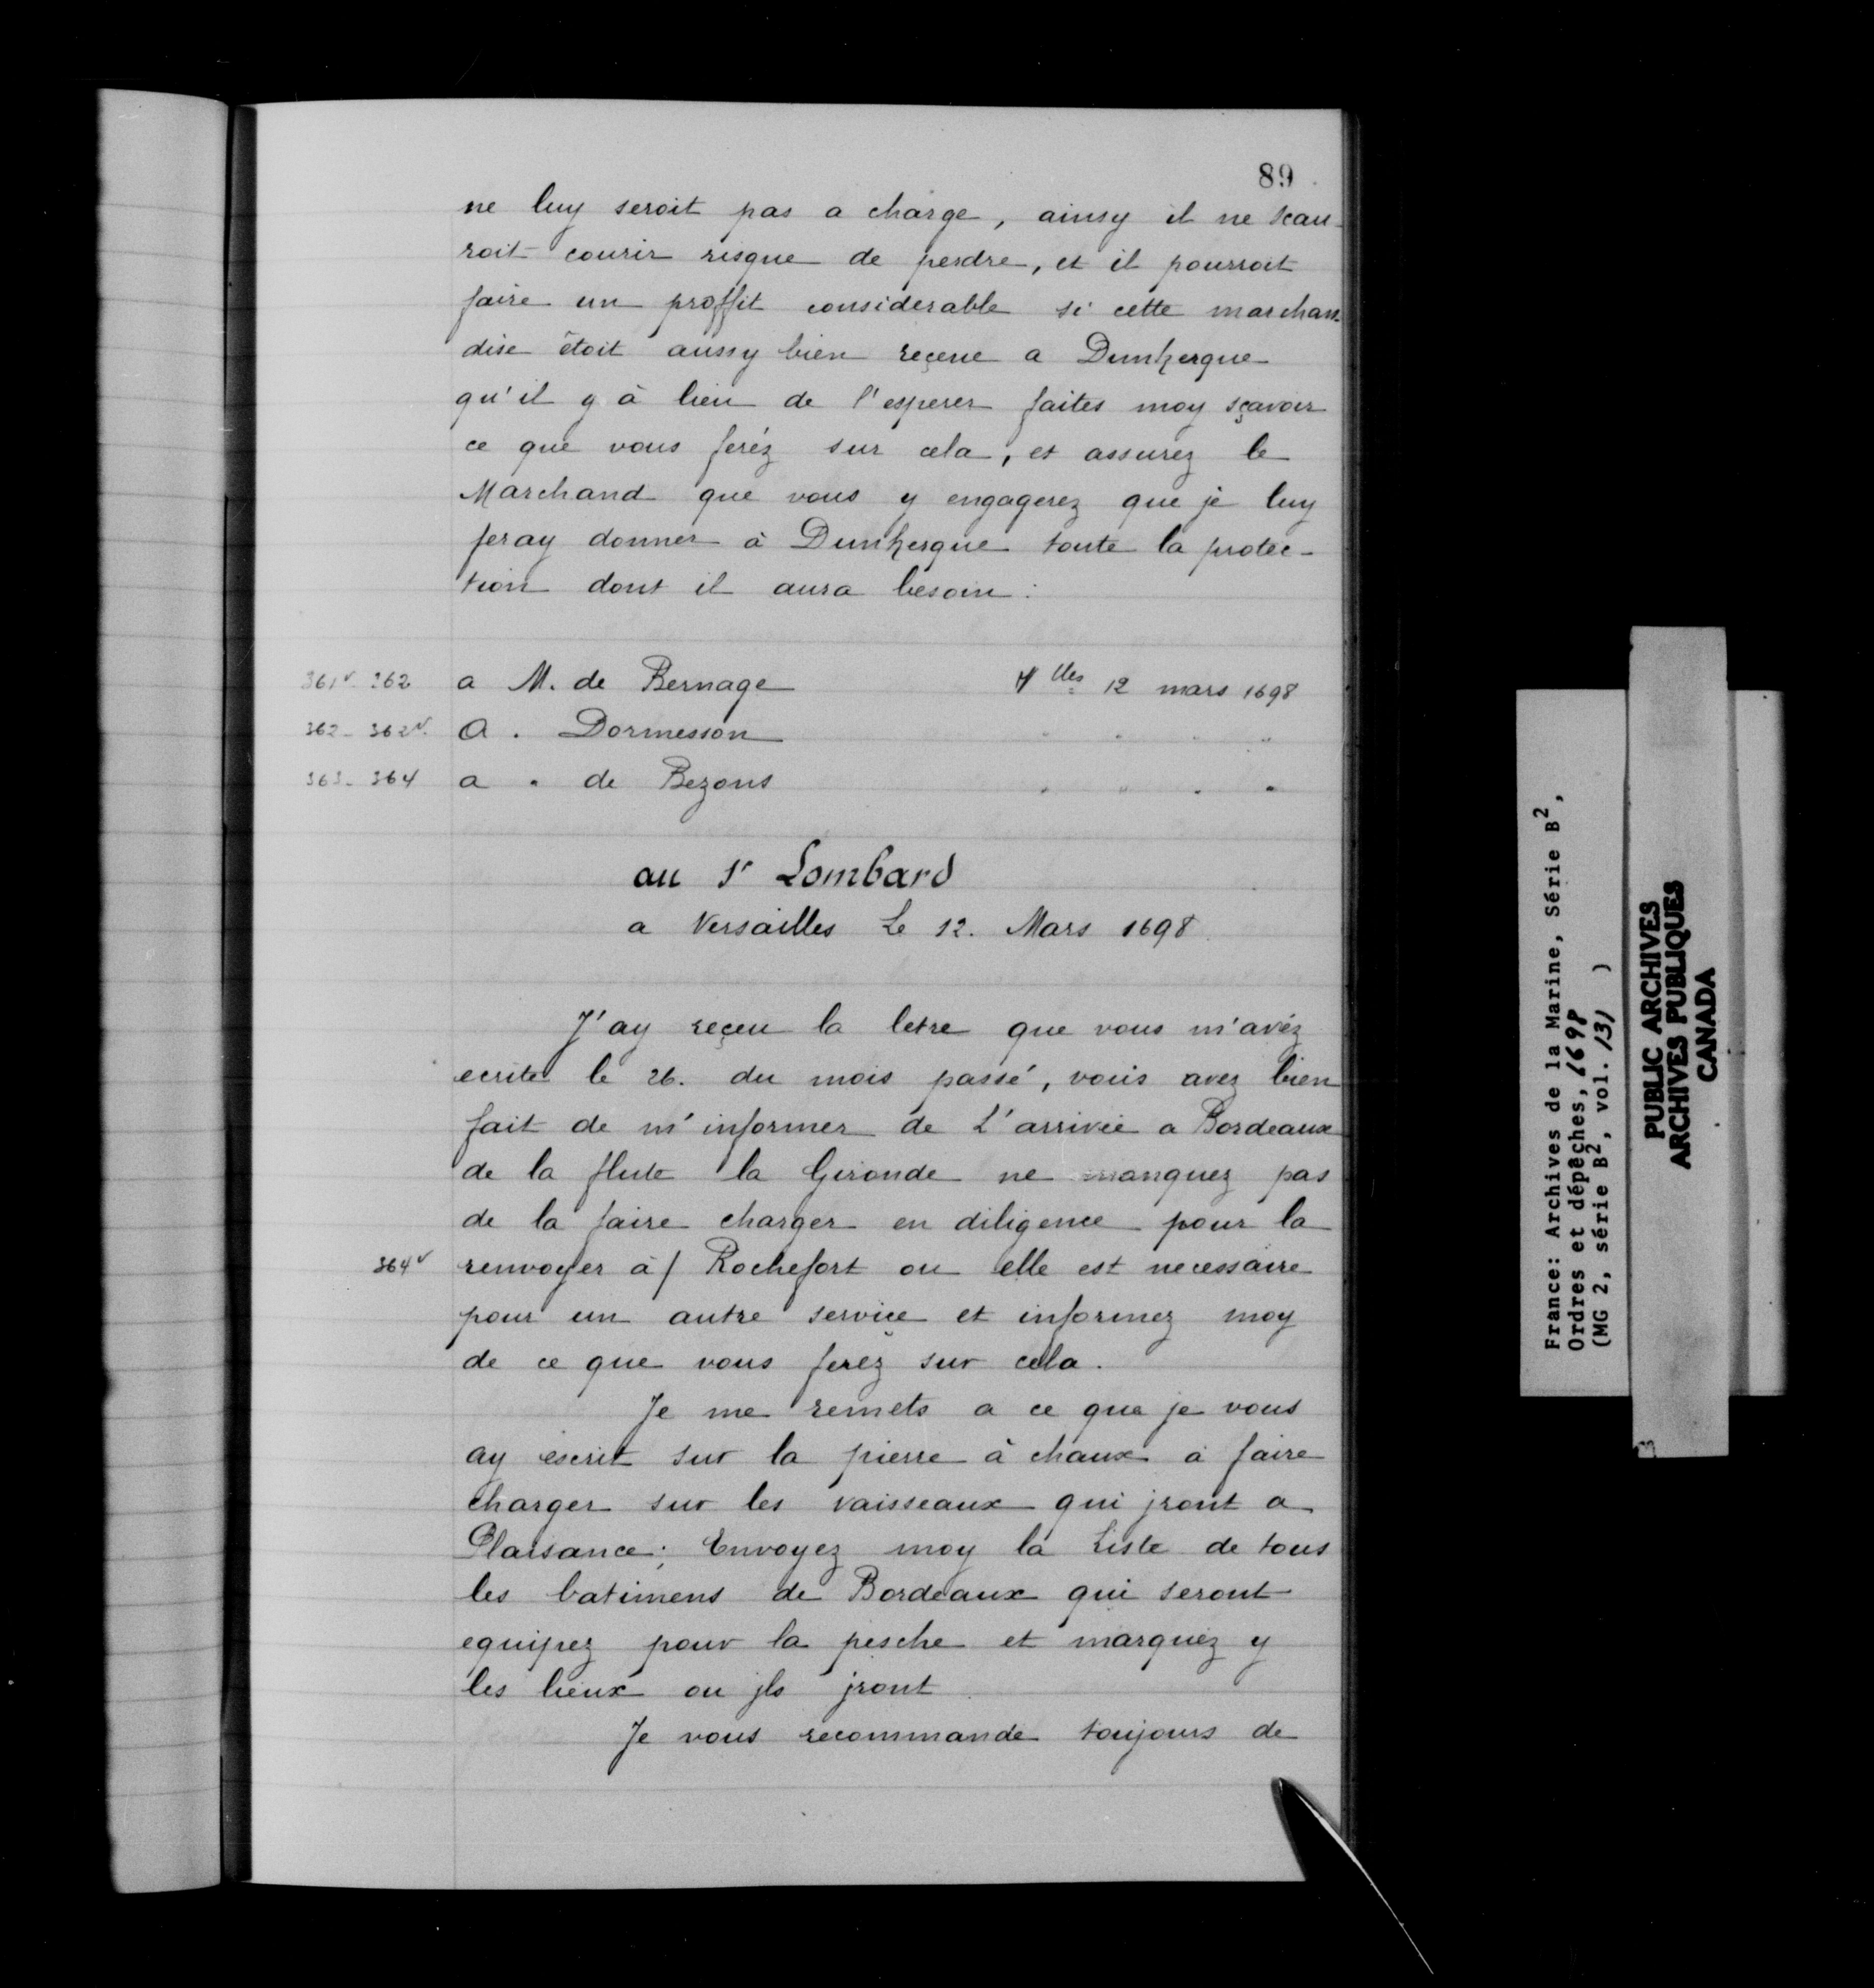 89
ne luy seroit pas a charge, ainsy il ne scau-
roit courir risque de perdre, et il pourroit
faire un proffit considerable si cette marchan-
dise étoit aussy bien reçeue a Dunkerque
qu'il y à lieu de l'esperer faites moy sçavoir
ce que vous feréz sur cela, et assurez le
Marchand que vous y engagerez que je luy
feray donner à Dunkerque toute la protec-
tion dont il aura besoin.
361v- 362 a M. de Bernage Vlles 12 mars 1698
362- 362v. A . Dormesson " " " "
363- 364 a " de Bezons " " " "
au Sr Lombard
a Versailles Le 12. Mars 1698.
J'ay reçeu la letre que vous m'avéz
ecrite le 26. du mois passé, vous avez bien
fait de m'informer de L'arrivée a Bordeaux
de la flute la Gironde ne manquez pas
de la faire charger en diligence pour la
364v renvoyer à / Rochefort ou elle est necessaire
pour un autre service et informez moy
de ce que vous ferez sur cela.
Je me remets a ce que je vous
ay escrit sur la pierre à chaux a faire
charger sur les vaisseaux qui jront a
Plaisance; Envoyez moy la Liste de tous
les batimens de Bordeaux qui seront
equipez pour la pesche et marquez y
les lieux ou jls jront.
Je vous recommande toujours de
France: Archives de la Marine, Série B2,
Ordres et dépêches, 1698
(MG 2, série B2, vol. 131 )
PUBLIC ARCHIVES
ARCHIVES PUBLIQUES
CANADA